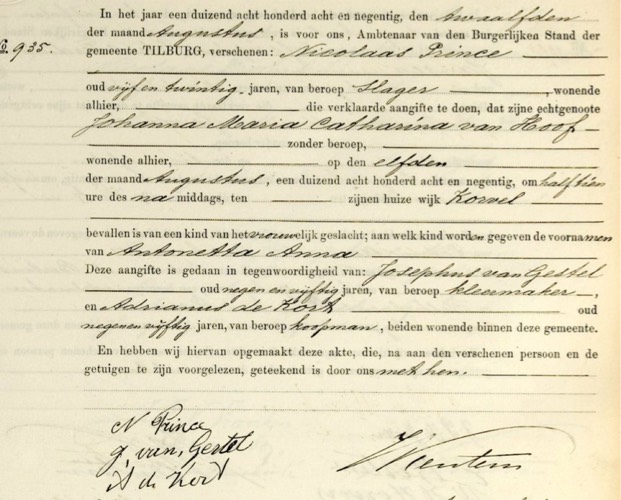 In het jaar een duizend acht honderd acht en negentig, den twaalfden
der maand Augustus, is voor ons, Ambtenaar van den Burgerlijken Stand der
No. 935.
gemeente TILBURG, verschenen: Nicolaas Prince
oud vijf en twintig jaren, van beroep Slager, wonende
alhier, die verklaarde aangifte te doen, dat zijne echtgenoote
Johanna Maria Catharina van Hoof
zonder beroep,
wonende alhier, op den elfden
der maand Augustus, een duizend acht honderd acht en negentig, om half tien
ure des na middags, ten zijnen huize wijk Korvel
bevallen is van een kind van het vrouwelijk geslacht; aan welk kind worden gegeven de voornamen
van Antonetta Anna
Deze aangifte is gedaan in tegenwoordigheid van: Josephus van Gestel
oud negen en vijftig jaren, van beroep kleermaker,
en Adrianus de Kort oud
negen en vijftig jaren, van beroep koopman, beiden wonende binnen deze gemeente.
En hebben wij hiervan opgemaakt deze akte, die, na aan den verschenen persoon en de
getuigen te zijn voorgelezen, geteekend is door ons met hen.
N Prince
J. van Gestel
A de Kort